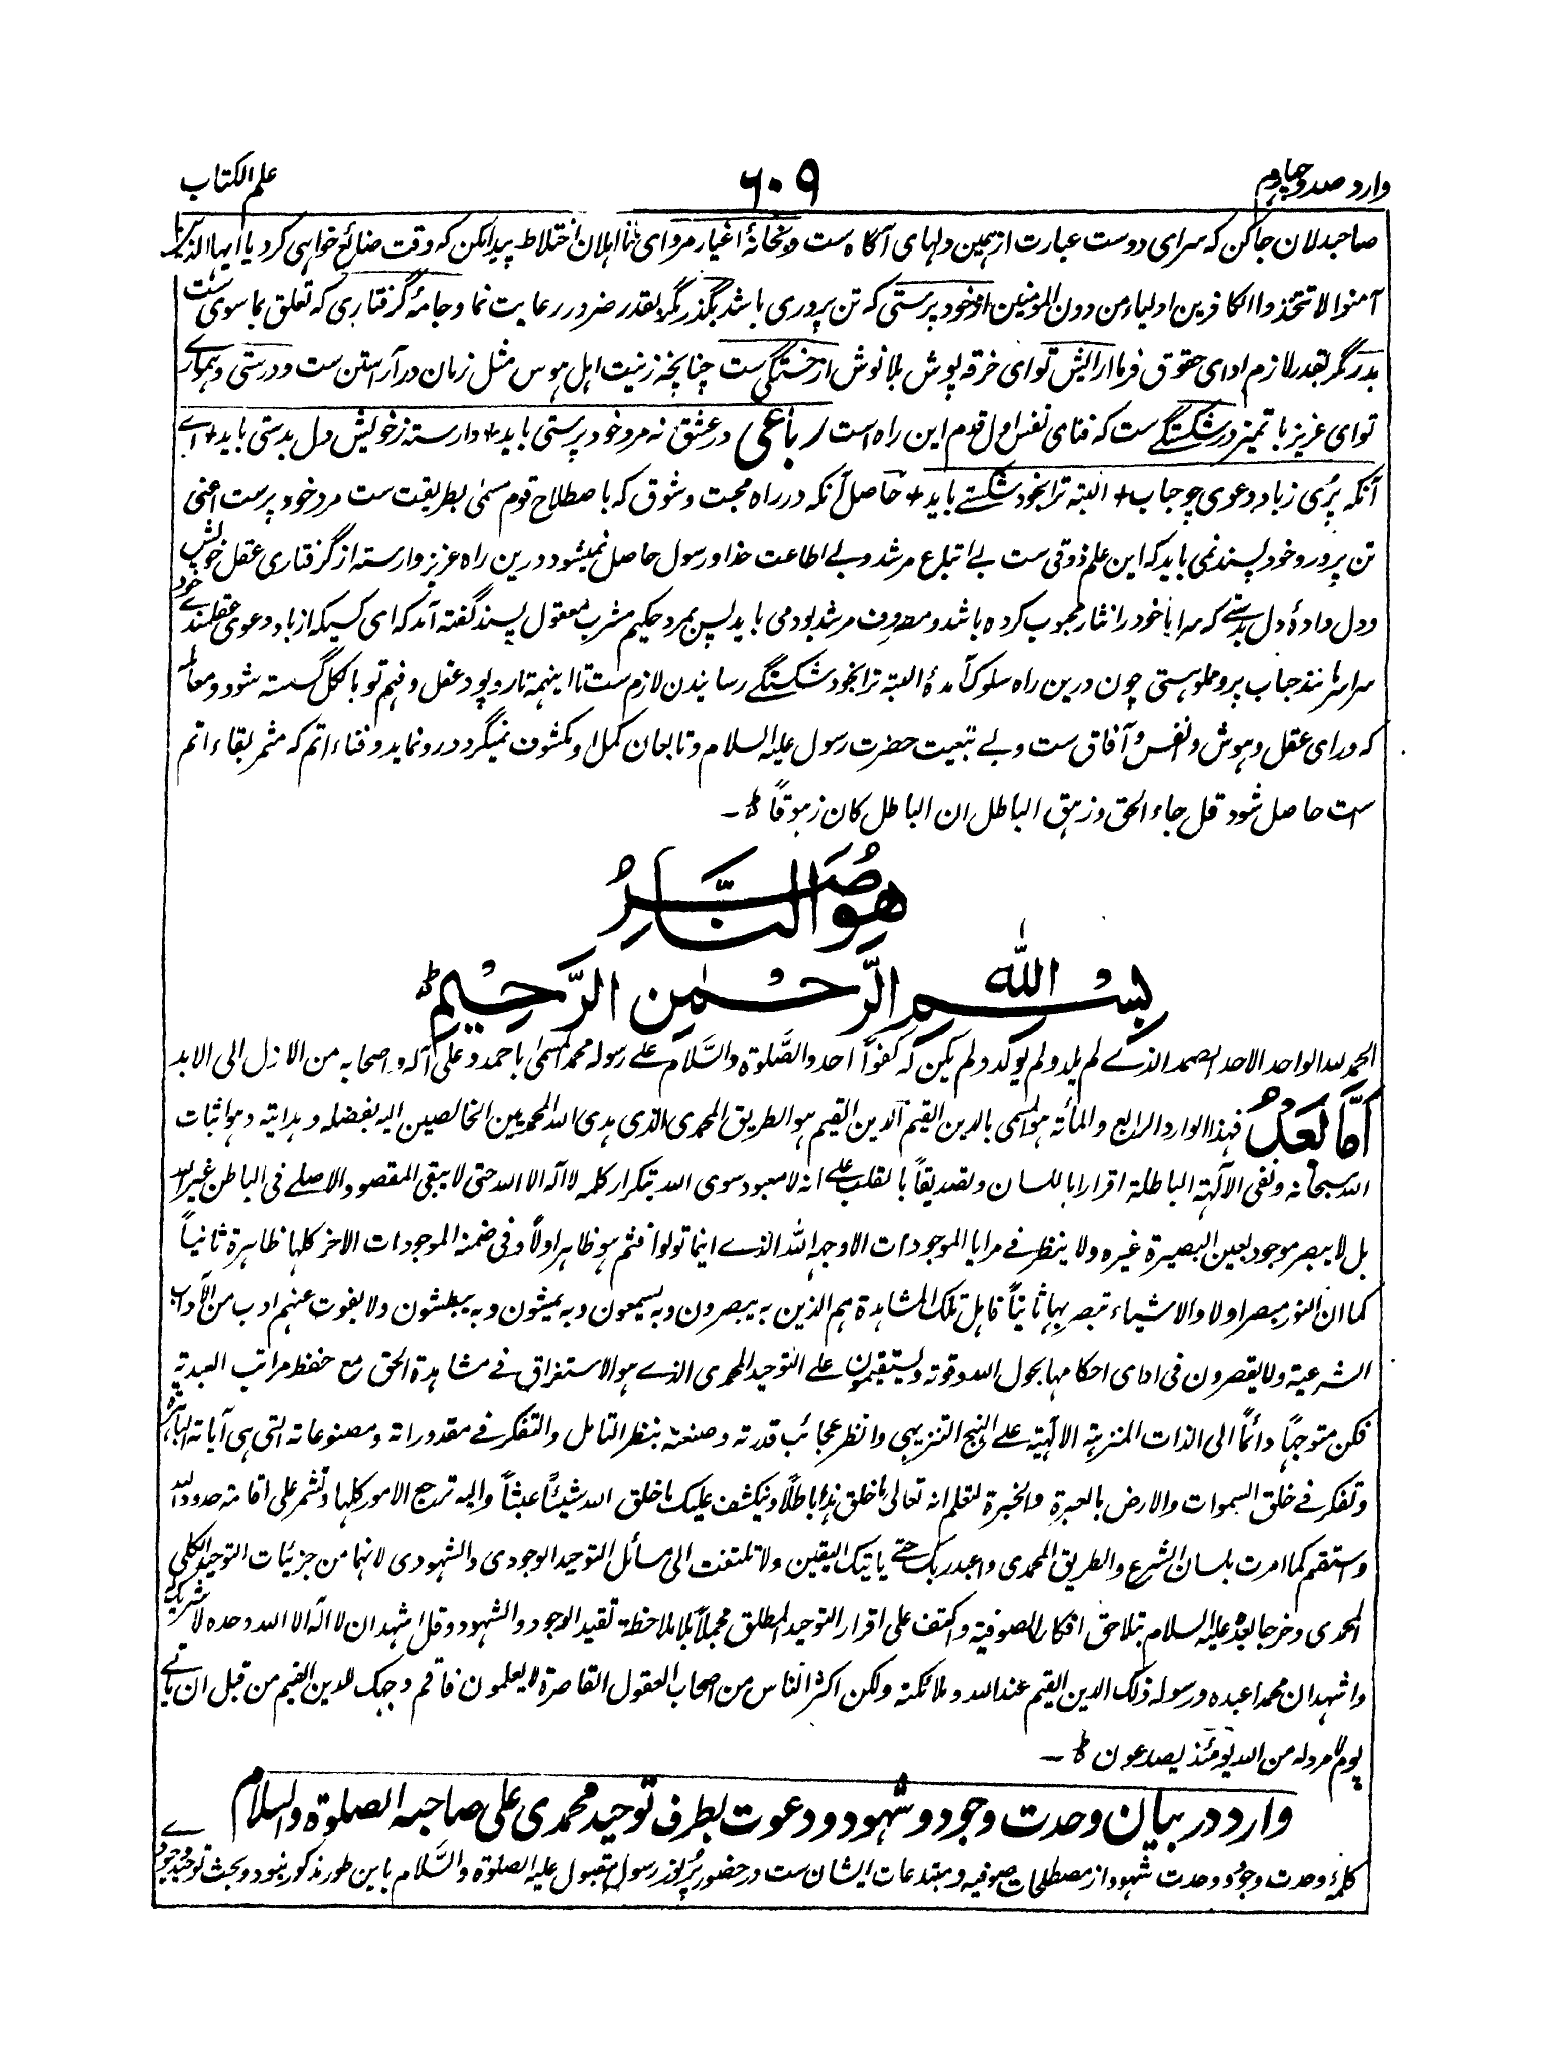 وارد صد و چهارم
۶۰۹
علم الکتاب
صاحبدلان جا کن که سرای دوست عبارت ازہمین دلہای آگاہ ست و نجانۂ اغیار مرو ای با نااہلان اختلاط پیدا مکن که وقت ضائع خواہی کرد یا ایہا الذین
آمنوا لا تتخذوا الکافرین اولیاء من دون المومنین از خود پرستی که تن پروری باشد بگذر مگر بقدر ضرور رعایت نما و جامۂ گرفتاری که تعلق بما سوی ست
بدر مگر بقدر لازم ادای حقوق فرما آرایش تو ای خرقه پوش بلا نوش از خستگی ست چنانچه زینت اہل ہوس مثل زنان در آراستن ست و درستی و ہمواری
تو ای عزیز با تمیز در شکستگے ست که فنای نفس اول قدم این راہ است رباعی در عشق نه مرد خود پرستی باید + وارسته ز خویش دل بدستی باید + اے
آنکه پُری ز باد دعوی چو حباب + البته ترا بخود شکستے باید + حاصل آنکه در راہ محبت و شوق که با صطلاح قوم مسمٰی بطریقت ست مرد خود پرست اعنی
تن پرور و خود پسند نمی باید که این علم ذوقی ست بے اتباع مرشد و بے اطاعت خدا و رسول حاصل نمیشود درین راہ عزیز وارسته از گرفتاری عقل خویش
و دل دادۂ دل بدستے که سراپا خود را نثار محبوب کردہ باشد و مصروف مرشد بود می باید پس بمرد حکیم مشرب معقول پسند گفته آمد که ای کسیکه از باد دعوی عقلمندے خود
سراسر مانند حباب پر و مملو ہستی چون درین راہ سلوک آمدۂ البته ترا بخود شکستگے رسانیدن لازم ست تا اینہمه تار و پود عقل و فہم تو بالکل گسسته شود و معامله
که ورای عقل و ہوش و انفس و آفاق ست و بے تبعیت حضرت رسول علیه السلام و تابعان کمل او مکشوف نمیگردد رو نماید و فناء اتم که مثمر بقاء اتم
است حاصل شود قل جاء الحق و زہق الباطل ان الباطل کان زہوقاً ط۔
هو الناصر
بسم الله الرحمن الرحيم ط
الحمد لله الواحد الاحد الصمد الذے لم یلد و لم یولد و لم یکن له کفواً احد والصَّلوٰة والسَّلام علے رسوله محمد المسمٰی باحمد و علی آله و اصحابه من الازل الی الابد
اَمّا بَعدُ فہذا الوارد الرابع و المأته ہو المسمی بالدین القیم الدین القیم ہو الطریق المحمدی الذی ہدی الله المحمدیین الخالصین الیه بفضله و ہدایته و ہو اثبات
الله سبحانه و نفی الآلہة الباطلة اقرارا باللسان و تصدیقاً بالقلب علے انه لا معبود سوی الله بتکرار کلمه لا اله الا الله حتی لا یبقی المقصود الاصلے فی الباطن غیر الله
بل لا یبصر موجود بعین البصیرة غیره ولا ینظر فے مرایا الموجودات الا وجه الله الذے اینما تولوا فثم ہو ظاہر اولاً و فی ضمنه الموجودات الاخر کلہا ظاہرة ثانیاً
کما ان النور مبصر اولا والاشیاء تبصر بہا ثانیاً فاہل تلک المشاہدة ہم الذین به یبصرون و به یسمعون و به یمشون و به یبطشون ولا یفوت عنہم ادب من الآداب
الشرعیة ولا یقصرون فی ادای احکامہا بحول الله و قوته و یستقیمون علے التوحید المحمدی الذے ہو الاستغراق فے مشاہدة الحق مع حفظ مراتب العبدیة
فکن متوجہاً دائماً الی الذات المنزہة الالٰہیة علے النہج التنزیہی وانظر عجائب قدرته و صنعته بنظر التامل والتفکر فے مقدوراته و مصنوعاته التی ہی آیاته الباہرة
و تفکر فے خلق السموات والارض بالعبرة والخبرة لتعلم انه تعالی ما خلق ہذا باطلاً و ینکشف علیک ما خلق الله شیئاً عبثاً والیه ترجع الامور کلہا و تشمر علی اقامة حدود الله
واستقم کما امرت بلسان الشرع والطریق المحمدی واعبد ربک حتے یاتیک الیقین ولا تلتفت الی مسائل التوحید الوجودی والشہودی لانہما من جزئیات التوحید الکلی
المحمدی و خرجا بعدہ علیه السلام بتلاحق افکار الصوفیه واکتف علی اقرار التوحید المطلق مجملاً بلا ملاحظة تقید الوجود والشہود و قل اشہد ان لا اله الا الله وحدہ لا شریک له
واشہد ان محمدا عبدہ و رسوله ذلک الدین القیم عند الله و ملائکته ولکن اکثر الناس من اصحاب العقول القاصرة لا یعلمون فاقم وجہک للدین القیم من قبل ان یاتے
یوم لا مرد له من الله یومئذ یصدعون ط۔
وارد در بیان وحدت وجود و شہود و دعوت بطرف توحید محمدی علی صاحبه الصلوٰة والسلام
کلمۂ وحدت وجود و وحدت شہود از مصطلحات صوفیه و مبتدعات ایشان ست در حضور پُر نور رسول مقبول علیه الصلوٰة والسَّلام باین طور مذکور نبود و بحث توحید وجودے